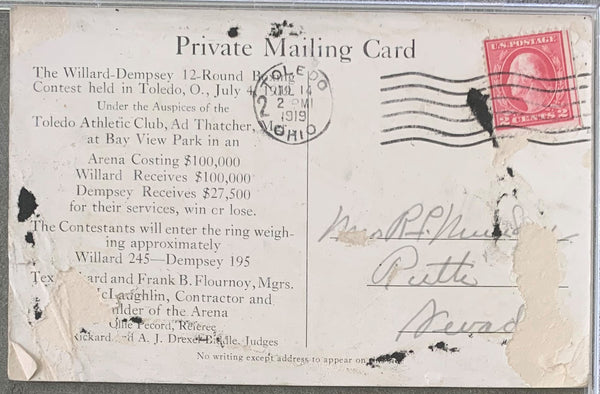 Private Mailing Card
The Willard-Dempsey 12-Round
Contest held in Toledo, O., July 4, 1919
Under the Auspices of the
Toledo Athletic Club, Ad Thatcher,
at Bay View Park in an
Arena Costing $100,000
Willard Receives $100,000
Dempsey Receives $27,500
for their services, win or lose.
The Contestants will enter the ring weigh-
ing approximately
Willard 245—Dempsey 195
Tex and Frank B. Flournoy, Mgrs.
McLaughlin, Contractor and
of the Arena
Ollie Pecord, Referee
Rickard and A. J. Drexel Biddle, Judges
No writing except address to appear on
TOLEDO
JUL 14
2 PM
1919
OHIO
2
U.S. POSTAGE
2 CENTS 2
Mrs R. L.
Ruth
Nevad